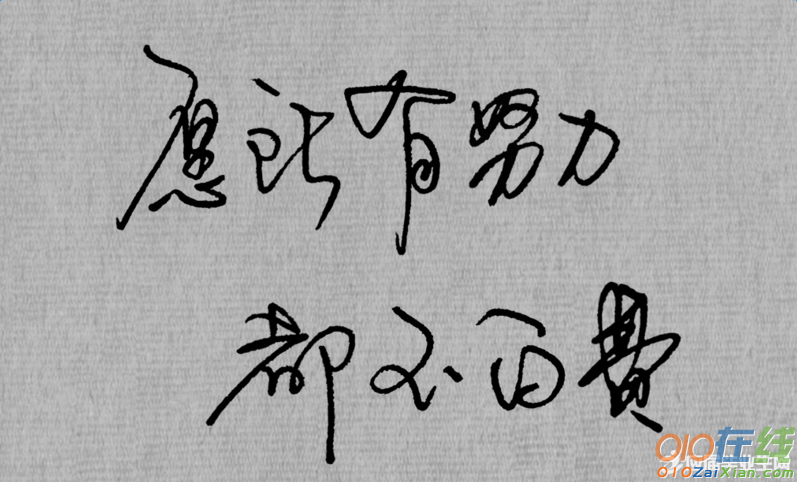 愿所有努力
都不白费
010在线
010ZaiXian.com